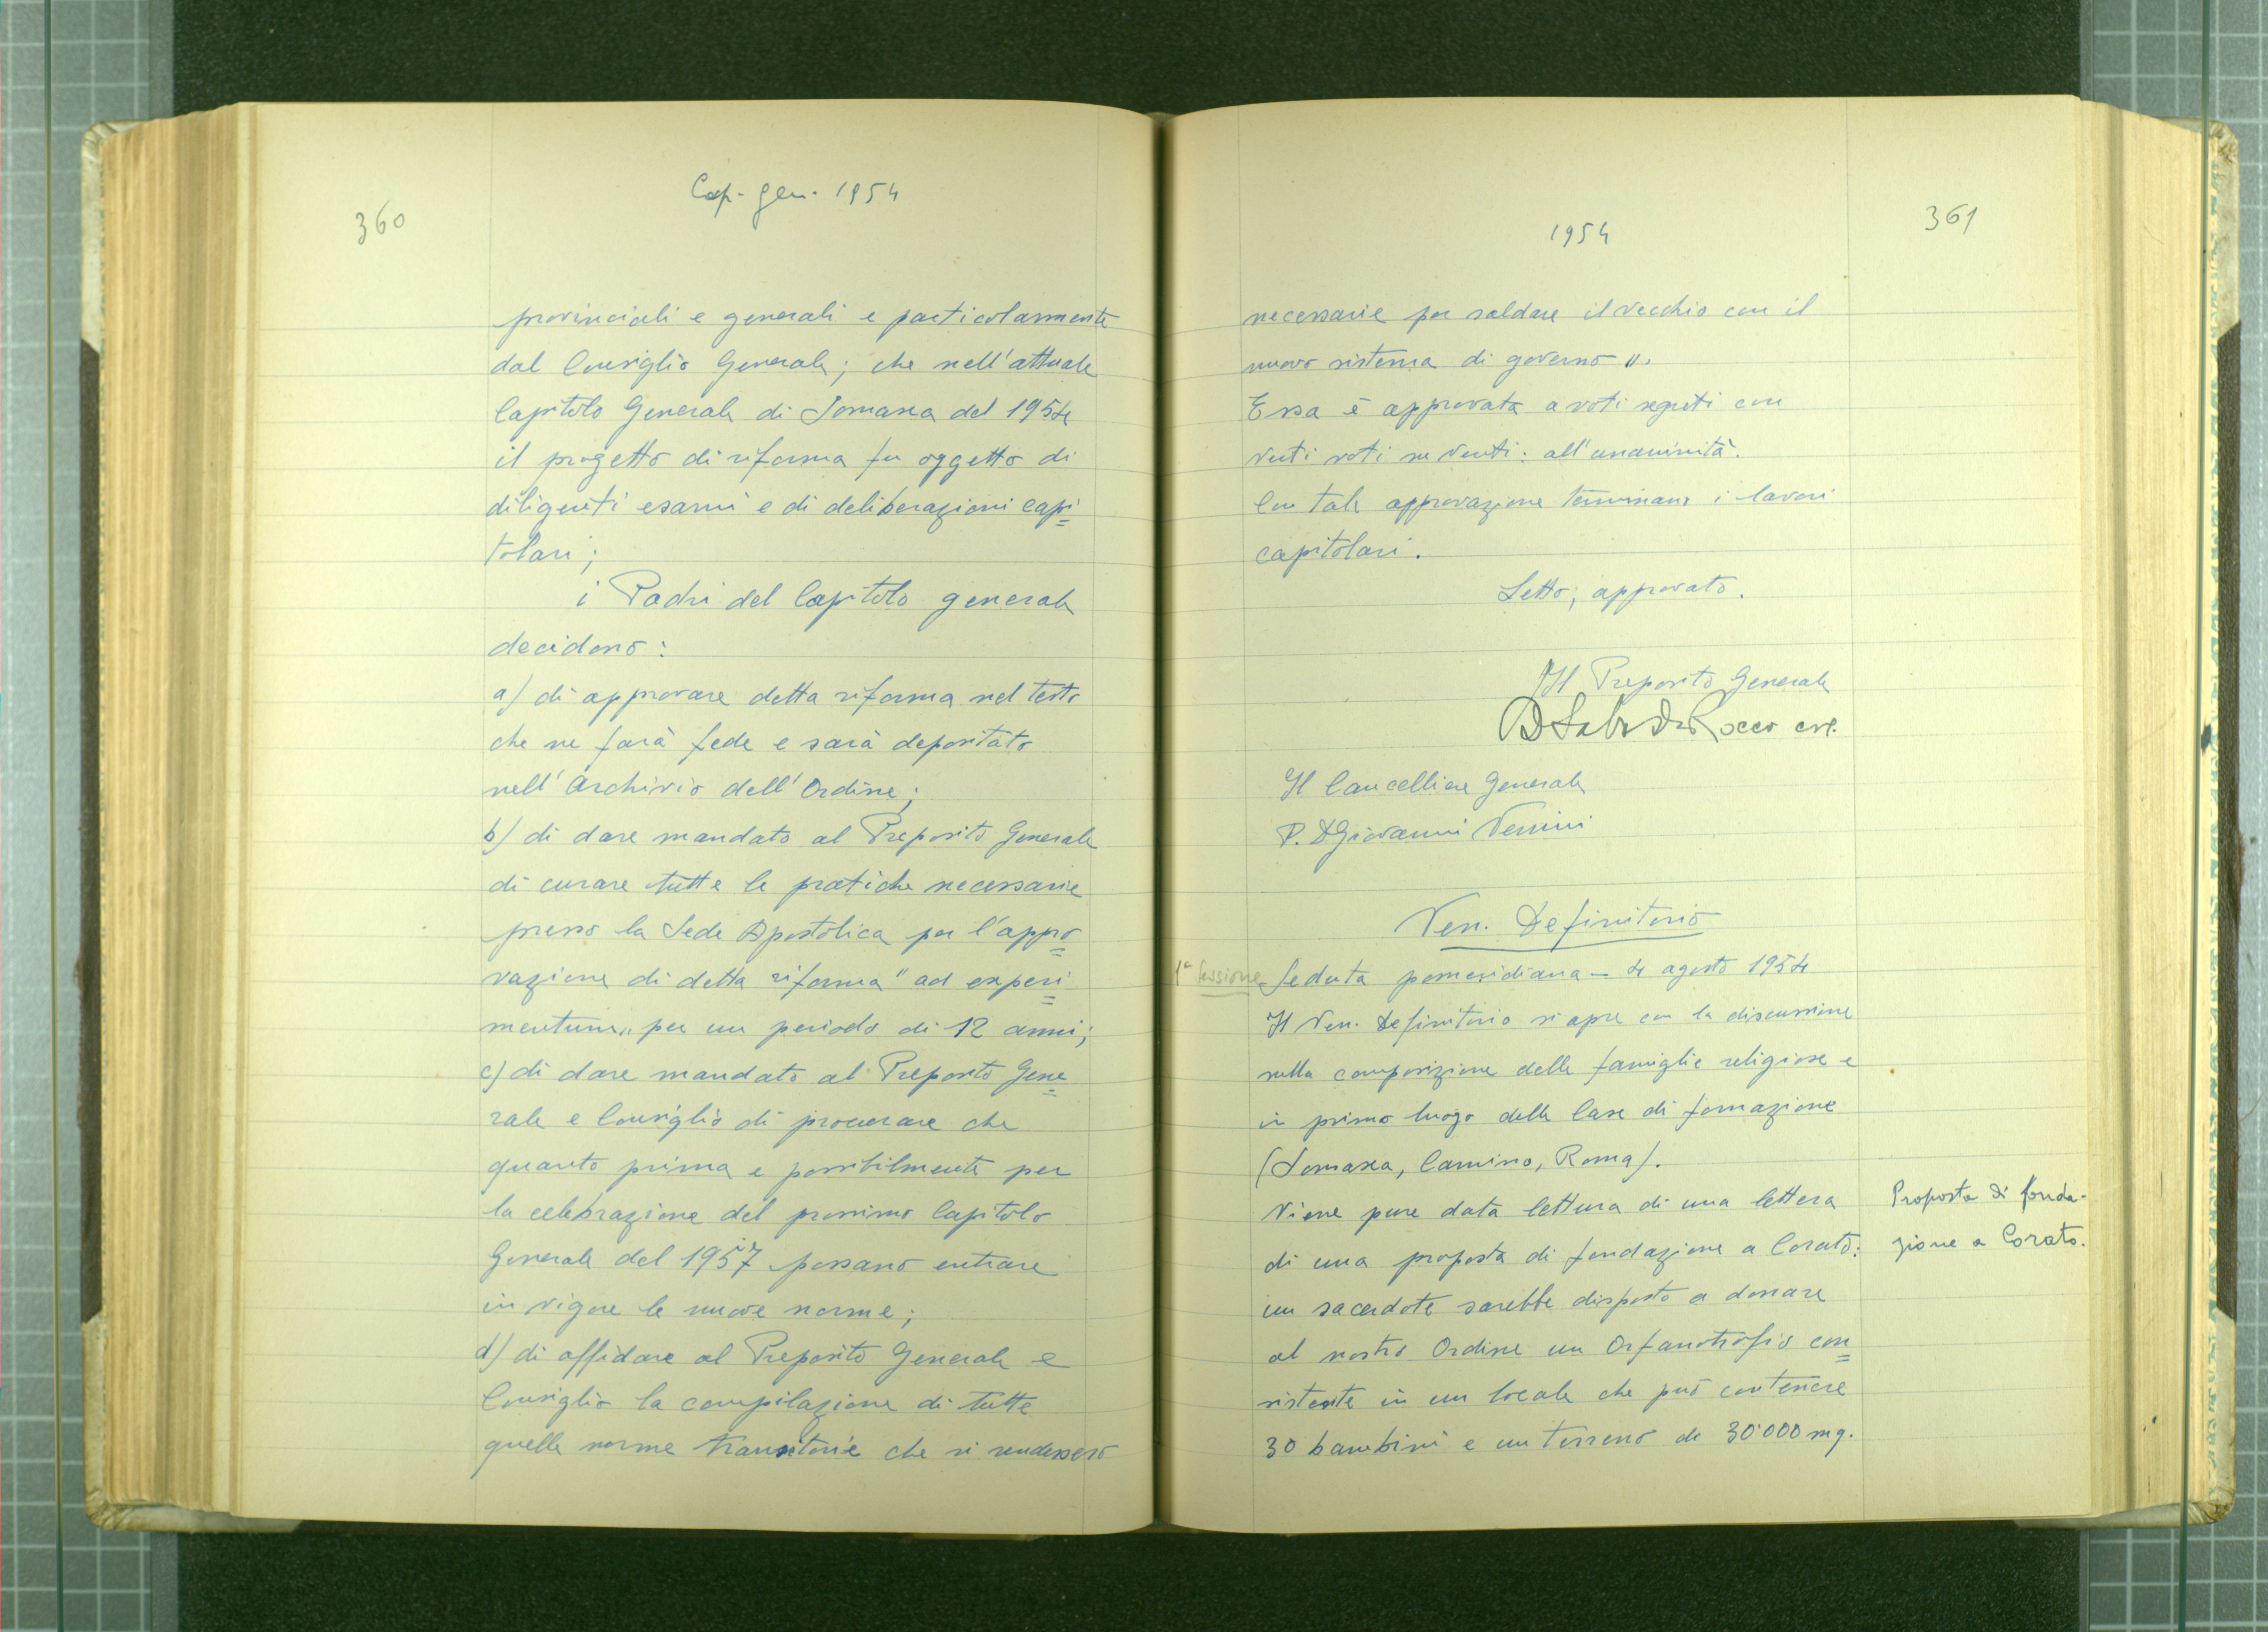 360
Cap. gen. 1954
provinciali e generali e particolarmente
dal Consiglio Generale; che nell'attuale
Capitolo Generale di Somasca del 1954
il progetto di riforma fu oggetto di
diligenti esami e di deliberazioni capi=
tolari;
i Padri del Capitolo generale
decidono:
a) di approvare detta riforma nel testo
che ne farà fede e sarà depositato
nell'Archivio dell'Ordine;
b) di dare mandato al Preposito Generale
di curare tutte le pratiche necessarie
presso la Sede Apostolica per l'appro=
vazione di detta riforma "ad experi=
mentum" per un periodo di 12 anni;
c) di dare mandato al Preposito Gene=
rale e Consiglio di procurare che
quanto prima e possibilmente per
la celebrazione del prossimo Capitolo
Generale del 1957 possano entrare
in vigore le nuove norme;
d) di affidare al Preposito Generale e
Consiglio la compilazione di tutte
quelle norme transitorie che si rendessero
361
1954
necessarie per saldare il vecchio con il
nuovo sistema di governo ".
Essa è approvata a voti segreti con
venti voti su venti: all'unanimità.
Con tale approvazione terminano i lavori
capitolari.
Letto, approvato.
Il Preposito Generale
D Saba De Rocco crs.
Il Cancelliere Generale
P. D Giovanni Venini
Ven. Definitorio
1ª sessione
Seduta pomeridiana - 4 agosto 1954
Il Ven. Definitorio si apre con la discussione
sulla composizione delle famiglie religiose e
in primo luogo delle Case di formazione
(Somasca, Camino, Roma).
Viene pure data lettura di una lettera
di una proposta di fondazione a Corato:
un sacerdote sarebbe disposto a donare
al nostro Ordine un Orfanotrofio con=
sistente in un locale che può contenere
30 bambini e un terreno di 30'000 mq.
Proposta di fonda-
zione a Corato.